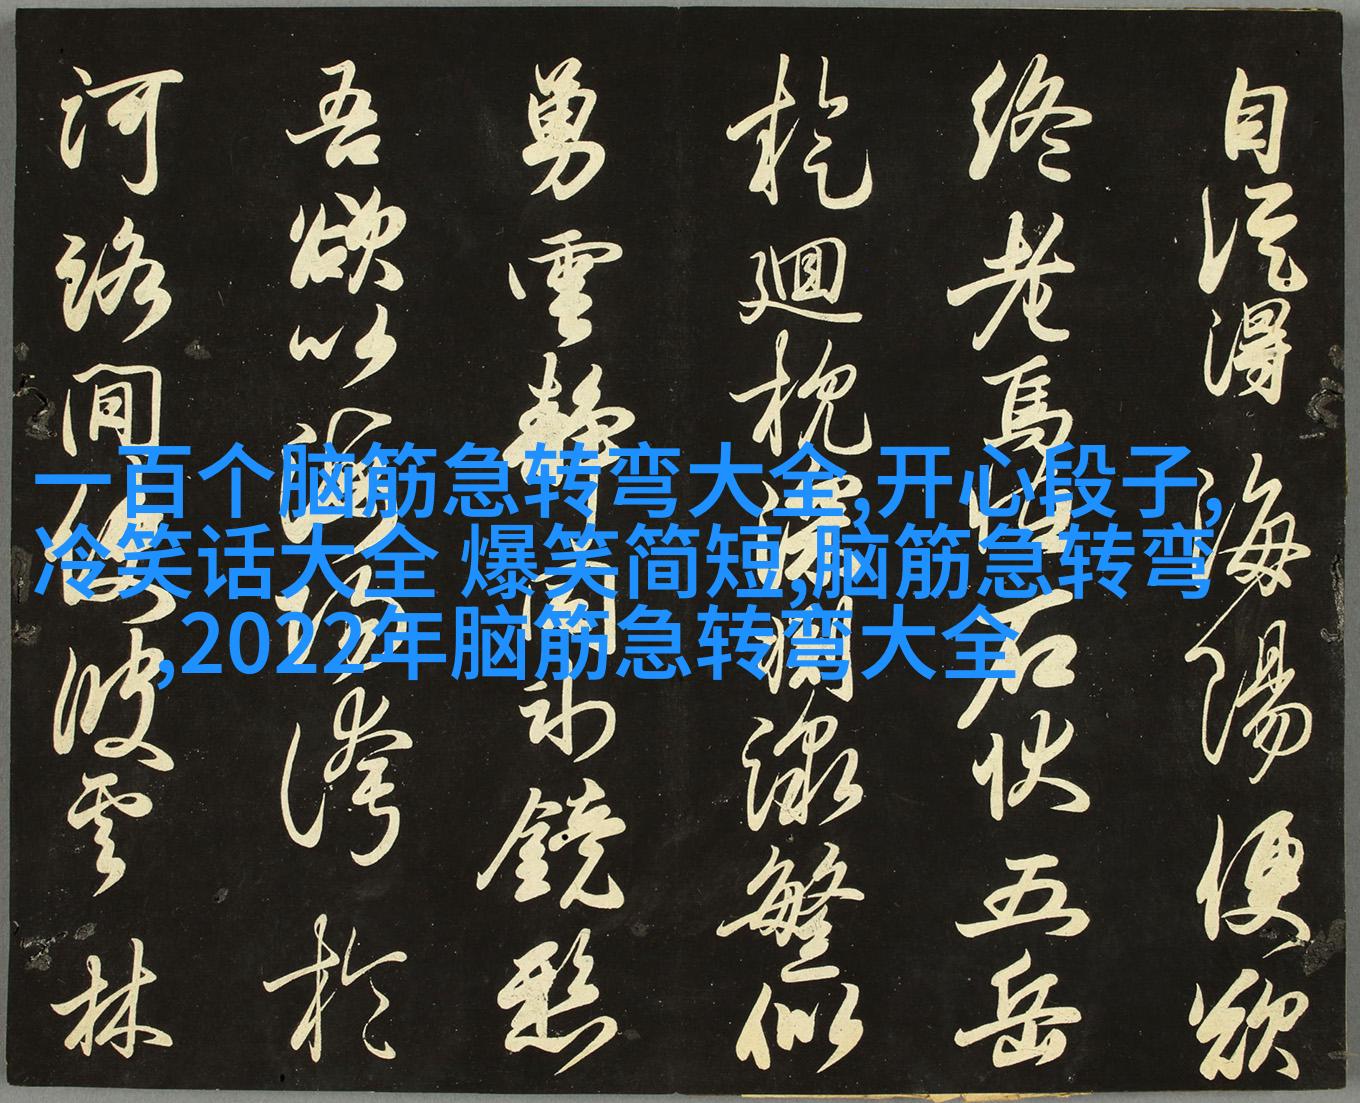 自從得海陽便欲
終老馬恠石伏五岳
於迴枕流繁似
勇雲靜鏡愁
吾欲以於
河洛間波雲林
一百个脑筋急转弯大全,开心段子,
冷笑话大全 爆笑简短,脑筋急转弯
,2022年脑筋急转弯大全